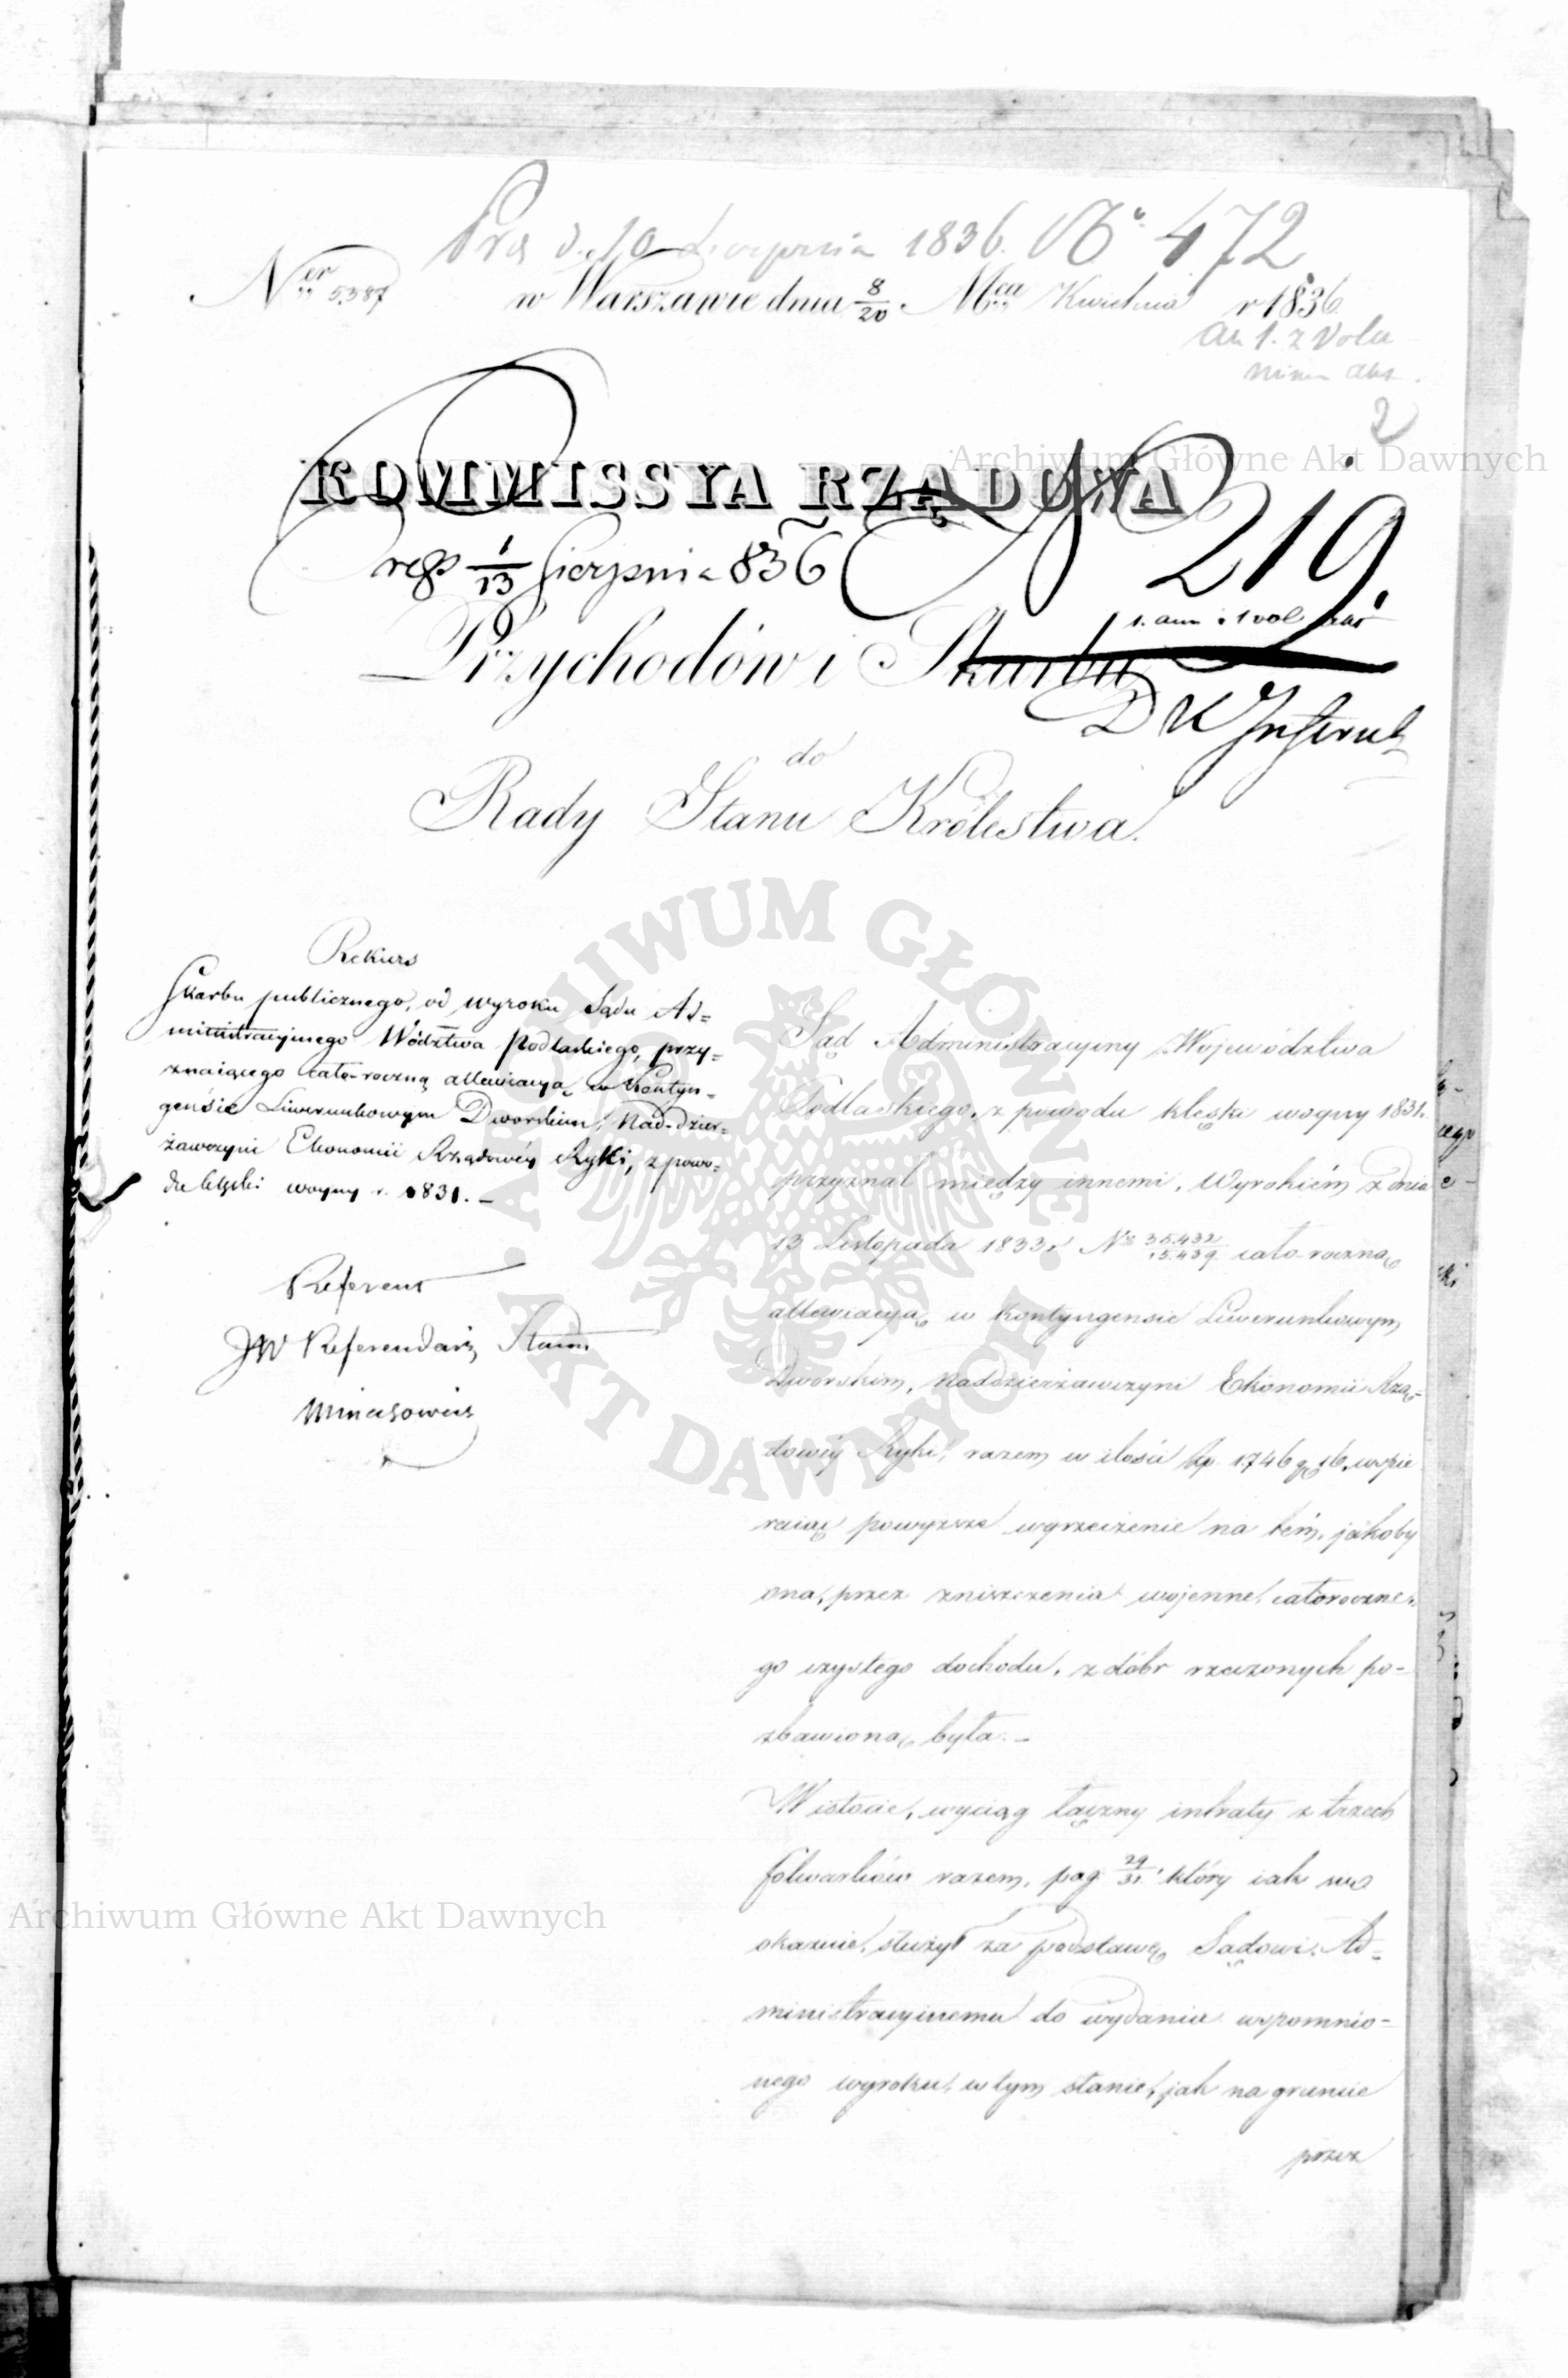 Pres d. 10 Sierpnia 1836. N° 472
Ner 5387
w Warszawie dnia 8/20. Mca Kwietnia r 1836
an 1. z Volu
2
Archiwum Główne Akt Dawnych
KOMMISSYA RZĄDOWA
219.
1/13 Sierpnia 836
1. ann i 1 vol
Przychodów i Skarbu
do
Rady Stanu Królestwa.
Rekurs
Skarbu publicznego, od wyroku Sądu Ad=
ministracyinego Wództwa Podlaskiego, przy=
znaiącego cało-roczną allewiacyą w Kontyn=
gensie Liwerunkowym Dworskim, Nad-dzier=
żawczyni Ekonomii Rządowéy Ryki, z powo=
du klęski woyny r. 1831. –
Referent
JW Referendarz Stanu
Minasowicz
ARCHIWUM GŁÓWNE AKT DAWNYCH
Sąd Administracyiny Województwa
Podlaskiego, z powodu klęski woyny 1831.
przyznał między innemi, Wyrokiém z dnia
13 Listopada 1833r N° 35.432/15.439 cało-roczną
allewiacyą w Kontyngensie Liwerunkowym
Dworskim, Naddzierżawczyni Ekonomii Rzą=
dowéy Ryki, razem w ilości Złp. 1746 g 16, wspie
raiąc powyższe wyrzeczenie na tém, jakoby
ona, przez zniszczenia wojenne, całoroczne=
go czystego dochodu, z dóbr rzeczonych po=
zbawioną była. –
W istocie, wyciąg łączny intraty z trzech
folwarków razem, pag 29/31. który iak się
okazuie, służył za podstawę Sądowi Ad=
ministracyinemu do wydania wspomnio=
nego wyroku, w tym stanie, jak na gruncie
przez
Archiwum Główne Akt Dawnych